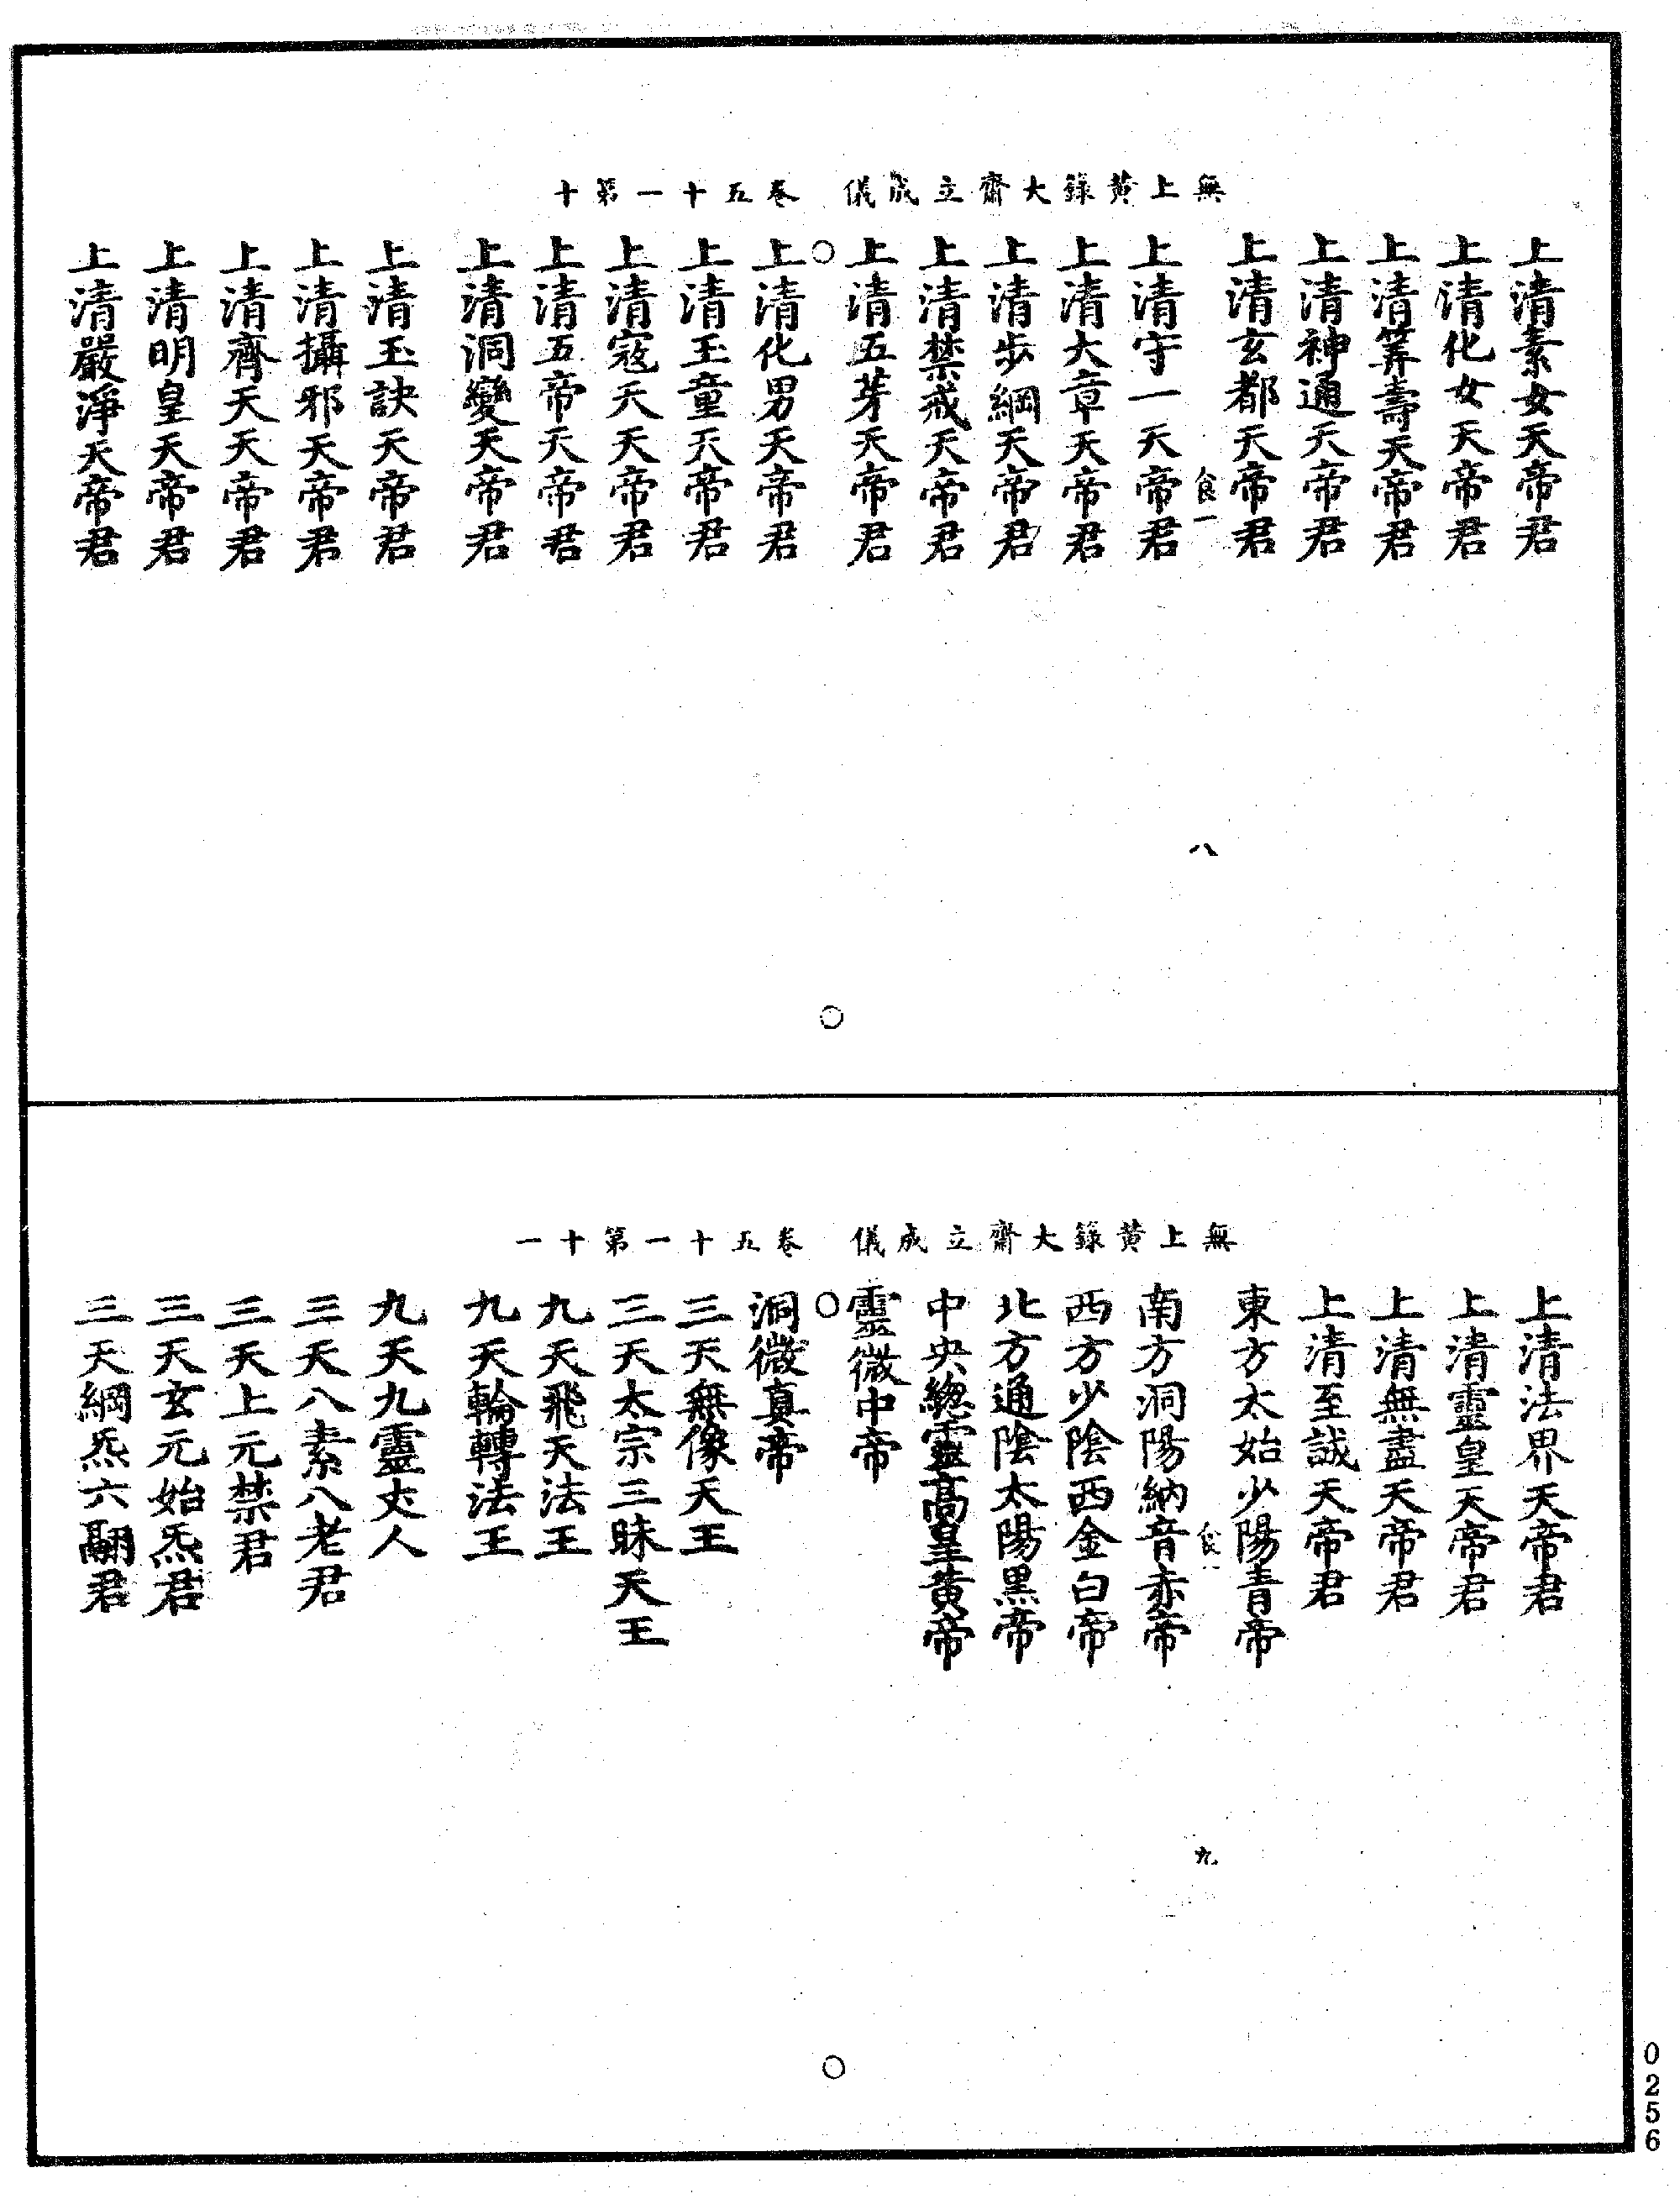 無上黃籙大齋立成儀　卷五十一第十
上清素女天帝君
上清化女天帝君
上清筭壽天帝君
上清神通天帝君
上清玄都天帝君
食一
八
上清守一天帝君
上清大章天帝君
上清步綱天帝君
上清禁戒天帝君
上清五芽天帝君
上清化男天帝君
上清玉童天帝君
上清寇天天帝君
上清五帝天帝君
上清洞變天帝君
上清玉訣天帝君
上清攝邪天帝君
上清齊天天帝君
上清明皇天帝君
上清嚴淨天帝君
無上黃籙大齋立成儀　卷五十一第十一
上清法界天帝君
上清靈皇天帝君
上清無盡天帝君
上清至誠天帝君
東方太始少陽青帝
食一
九
南方洞陽納音赤帝
西方少陰西金白帝
北方通陰太陽黑帝
中央總靈高皇黃帝
靈微中帝
洞微真帝
三天無像天王
三天太宗三昧天王
九天飛天法王
九天輪轉法王
九天九靈丈人
三天八素八老君
三天上元禁君
三天玄元始炁君
三天綱炁六翮君
0256